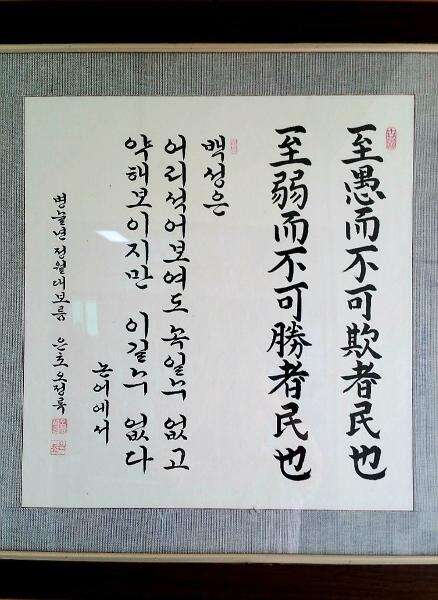 至愚而不可欺者民也
至弱而不可勝者民也
백성은
어리석어보여도 속일수 없고
약해보이지만 이길수 없다
논어에서
병술년 정월대보름 은호 오정록